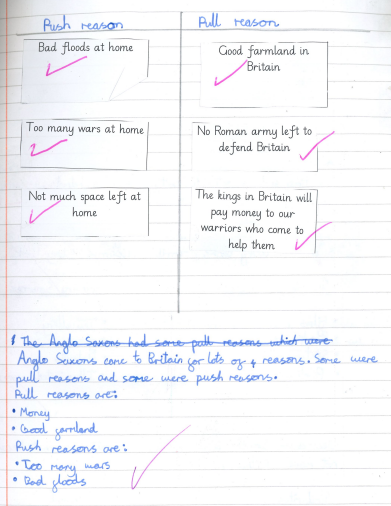 Push reason
Pull reason
Bad floods at home
Good farmland in
Britain
Too many wars at home
No Roman army left to
defend Britain
Not much space left at
home
The kings in Britain will
pay money to our
warriors who come to
help them
The Anglo Saxons had some pull reasons which were
Anglo Saxons came to Britain for lots of reasons. Some were
pull reasons and some were push reasons.
Pull reasons are:
• Money
• Good farmland
Push reasons are:
• Too many wars
• Bad floods